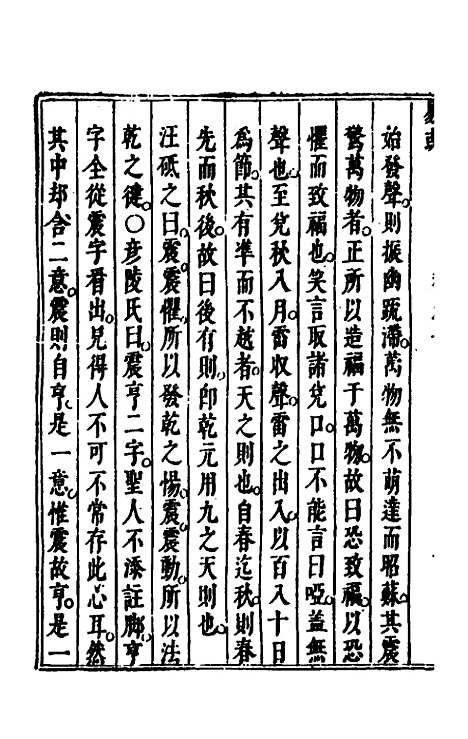 始發聲。則振幽疏滯。萬物無不萌達而昭蘇。其震
驚萬物者。正所以造福于萬物。故曰恐致福。以恐
懼而致福也。笑言取諸兌口。口不能言曰啞。蓋無
聲也。至兌秋八月。雷收聲。雷之出入。以百八十日
為節。其有準而不越者。天之則也。自春迄秋。則春
先而秋後。故曰後有則。卽乾元用九之天則也。
汪砥之曰。震震懼。所以發乾之惕。震震動。所以法
乾之健。○彥陵氏曰。震亨二字。聖人不湊註腳。亨
字全從震字看出。見得人不可不常存此心耳。然
其中却含二意。震則自亨。是一意。惟震故亨。是一